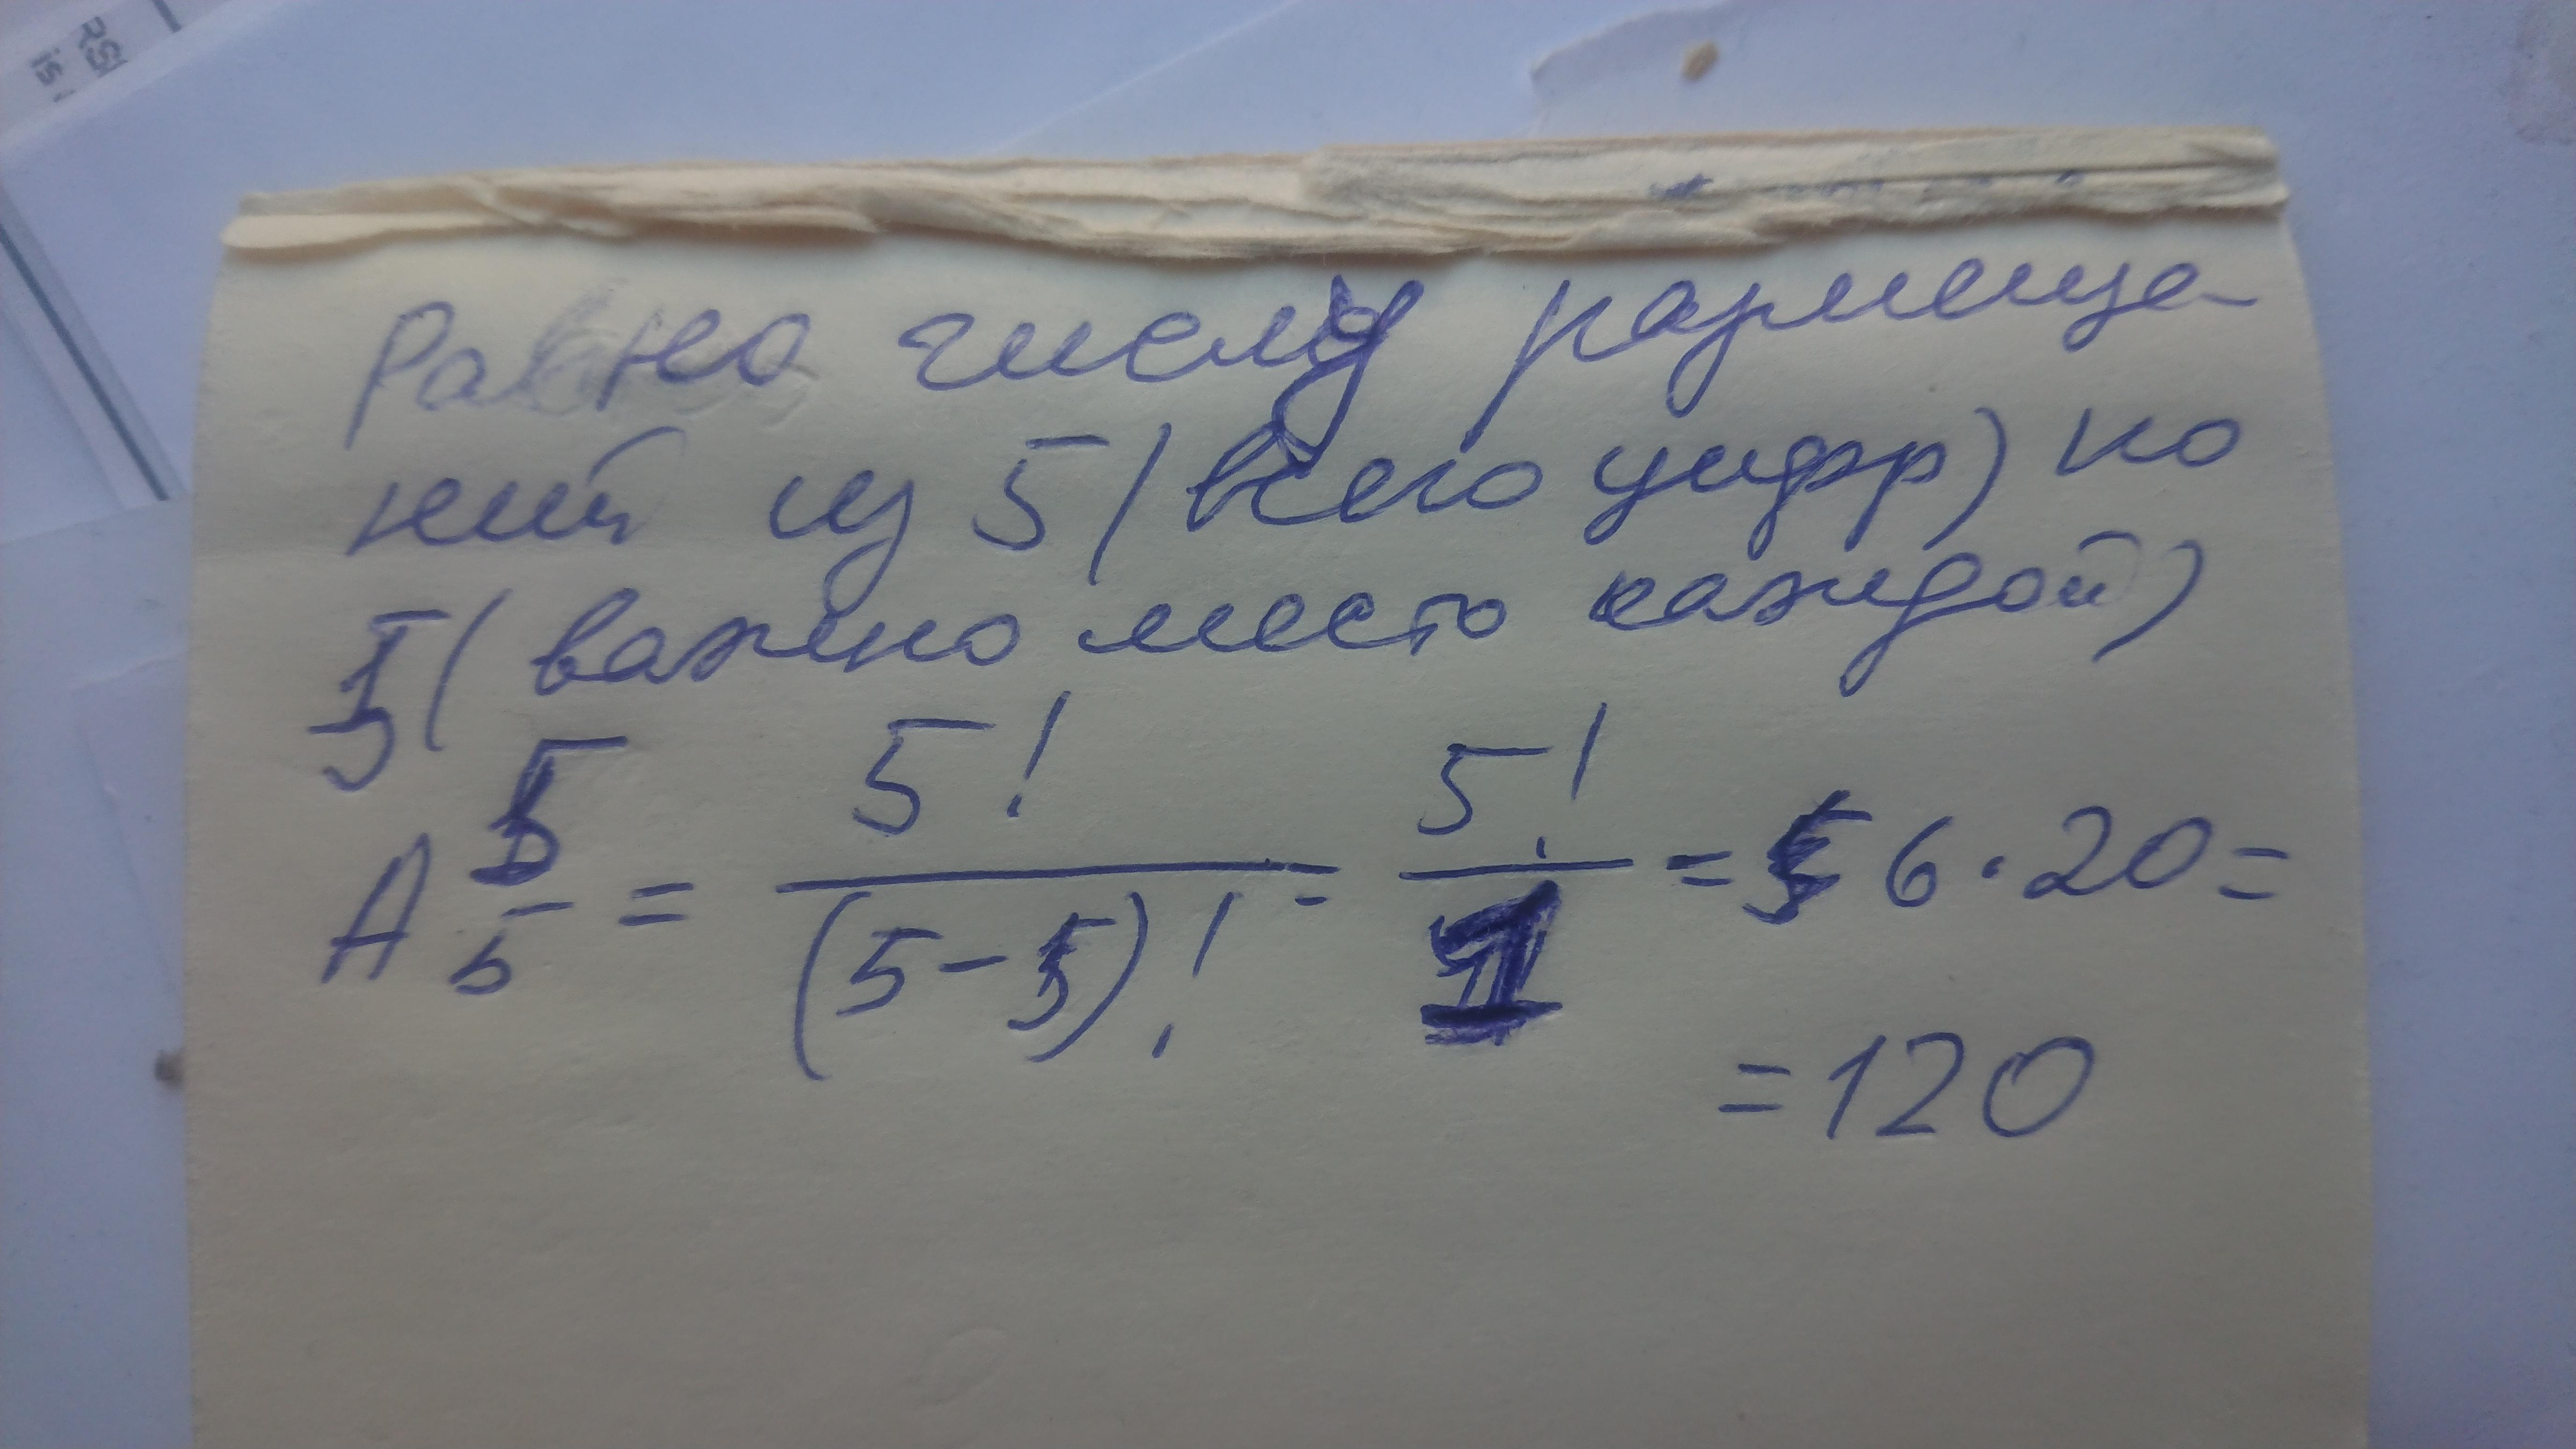 Равно числу размеще-
ний из 5 (всего цифр) по
5 (важно место каждой)
A⁵₅ = 5! / (5-5)! = 5! / 1 = 6·20=
=120